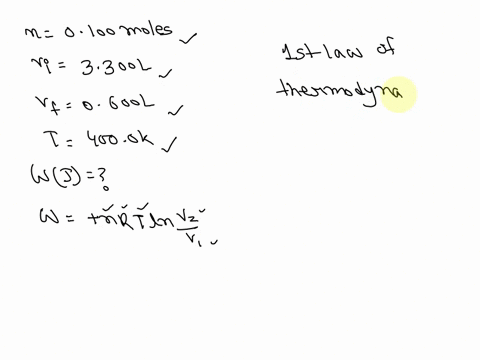 n = 0.100 moles ✓
Vi = 3.300L ✓
Vf = 0.600L ✓
T = 400.0k ✓
W(J) = ?
W = +nRT ln V2/V1
1st law of
thermodyna